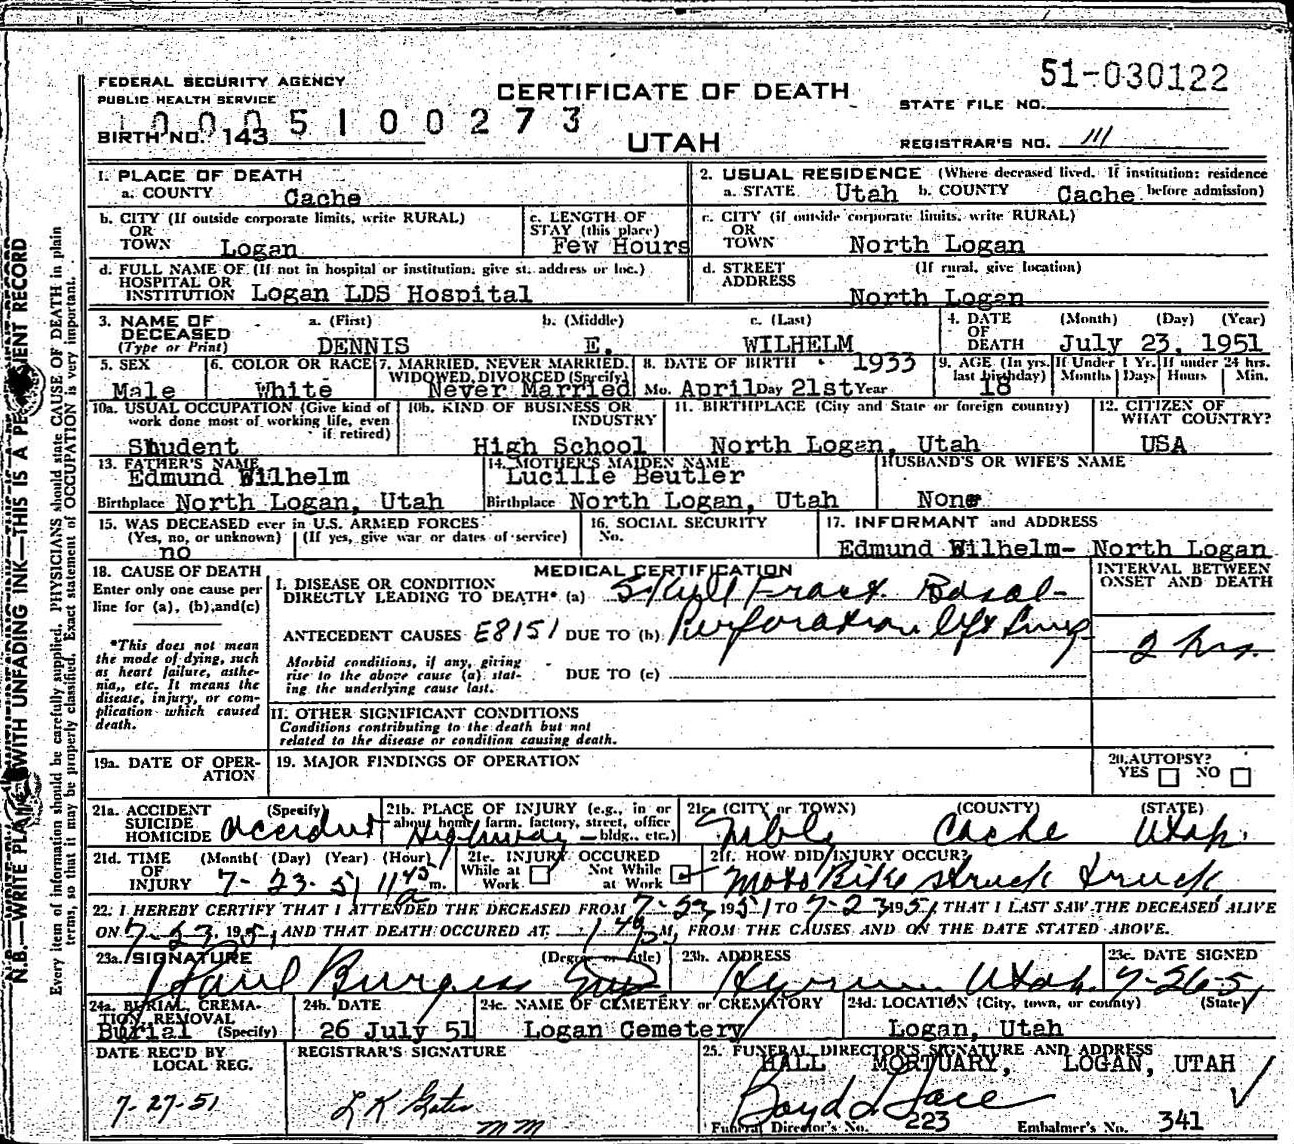 51-030122
FEDERAL SECURITY AGENCY
PUBLIC HEALTH SERVICE
CERTIFICATE OF DEATH
STATE FILE NO.
1 0 0 0 5 1 0 0 2 7 3
BIRTH NO. 143
UTAH
REGISTRAR'S NO. 111
1. PLACE OF DEATH
a. COUNTY Cache
2. USUAL RESIDENCE (Where deceased lived. If institution: residence before admission)
a. STATE Utah b. COUNTY Cache
b. CITY (If outside corporate limits, write RURAL)
OR
TOWN Logan
c. LENGTH OF
STAY (this place)
Few Hours
c. CITY (if outside corporate limits, write RURAL)
OR
TOWN North Logan
d. FULL NAME OF (If not in hospital or institution, give st. address or loc.)
HOSPITAL OR
INSTITUTION Logan LDS Hospital
d. STREET (If rural, give location)
ADDRESS
North Logan
3. NAME OF a. (First) b. (Middle) c. (Last)
DECEASED
(Type or Print) DENNIS E. WILHELM
4. DATE (Month) (Day) (Year)
OF
DEATH July 23, 1951
5. SEX
Male
6. COLOR OR RACE
White
7. MARRIED, NEVER MARRIED,
WIDOWED, DIVORCED (Specify)
Never Married
8. DATE OF BIRTH 1933
Mo. April Day 21st Year
9. AGE (In yrs. last birthday) 18
If Under 1 Yr. Months Days
If under 24 hrs. Hours Min.
10a. USUAL OCCUPATION (Give kind of
work done most of working life, even
if retired)
Student
10b. KIND OF BUSINESS OR
INDUSTRY
High School
11. BIRTHPLACE (City and State or foreign country)
North Logan, Utah
12. CITIZEN OF
WHAT COUNTRY?
USA
13. FATHER'S NAME
Edmund Wilhelm
Birthplace North Logan, Utah
14. MOTHER'S MAIDEN NAME
Lucille Beutler
Birthplace North Logan, Utah
HUSBAND'S OR WIFE'S NAME
None
15. WAS DECEASED ever in U.S. ARMED FORCES
(Yes, no, or unknown) (If yes, give war or dates of service)
no
16. SOCIAL SECURITY
No.
17. INFORMANT and ADDRESS
Edmund Wilhelm- North Logan
18. CAUSE OF DEATH
Enter only one cause per
line for (a), (b), and (c)
*This does not mean
the mode of dying, such
as heart failure, asthe-
nia, etc. It means the
disease, injury, or com-
plication which caused
death.
MEDICAL CERTIFICATION
I. DISEASE OR CONDITION
DIRECTLY LEADING TO DEATH* (a) Skull Fract. Basal-
ANTECEDENT CAUSES E8151 DUE TO (b) Perforation left lung
Morbid conditions, if any, giving
rise to the above cause (a) stat-
ing the underlying cause last.
DUE TO (c)
INTERVAL BETWEEN
ONSET AND DEATH
2 hrs.
II. OTHER SIGNIFICANT CONDITIONS
Conditions contributing to the death but not
related to the disease or condition causing death.
19a. DATE OF OPER-
ATION
19. MAJOR FINDINGS OF OPERATION
20. AUTOPSY?
YES NO
21a. ACCIDENT (Specify)
SUICIDE
HOMICIDE accident
21b. PLACE OF INJURY (e.g., in or
about home, farm, factory, street, office
bldg., etc.)
Highway
21c. (CITY or TOWN) (COUNTY) (STATE)
Cache Utah
21d. TIME (Month) (Day) (Year) (Hour)
OF
INJURY 7-23-51 11 45 a m.
21e. INJURY OCCURED
While at Work Not While at Work
21f. HOW DID INJURY OCCUR?
Moto Bike struck truck
22. I HEREBY CERTIFY THAT I ATTENDED THE DECEASED FROM 7-23, 1951 TO 7-23 1951, THAT I LAST SAW THE DECEASED ALIVE
ON 7-23, 1951, AND THAT DEATH OCCURED AT 1 45 p M, FROM THE CAUSES AND ON THE DATE STATED ABOVE.
23a. SIGNATURE (Degree or title)
Burgess MD
23b. ADDRESS
Hyrum Utah.
23c. DATE SIGNED
7-26-51
24a. BURIAL, CREMA-
TION, REMOVAL
Burial (Specify)
24b. DATE
26 July 51
24c. NAME OF CEMETERY or CREMATORY
Logan Cemetery
24d. LOCATION (City, town, or county) (State)
Logan, Utah
DATE REC'D BY
LOCAL REG.
7-27-51
REGISTRAR'S SIGNATURE
L K Gates
mm
25. FUNERAL DIRECTOR'S SIGNATURE AND ADDRESS
HALL MORTUARY, LOGAN, UTAH
Funeral Director's No. 223 Embalmer's No. 341
N.B.—WRITE PLAINLY WITH UNFADING INK—THIS IS A PERMANENT RECORD
Every item of information should be carefully supplied. PHYSICIANS should state CAUSE OF DEATH in plain
terms, so that it may be properly classified. Exact statement of OCCUPATION is very important.